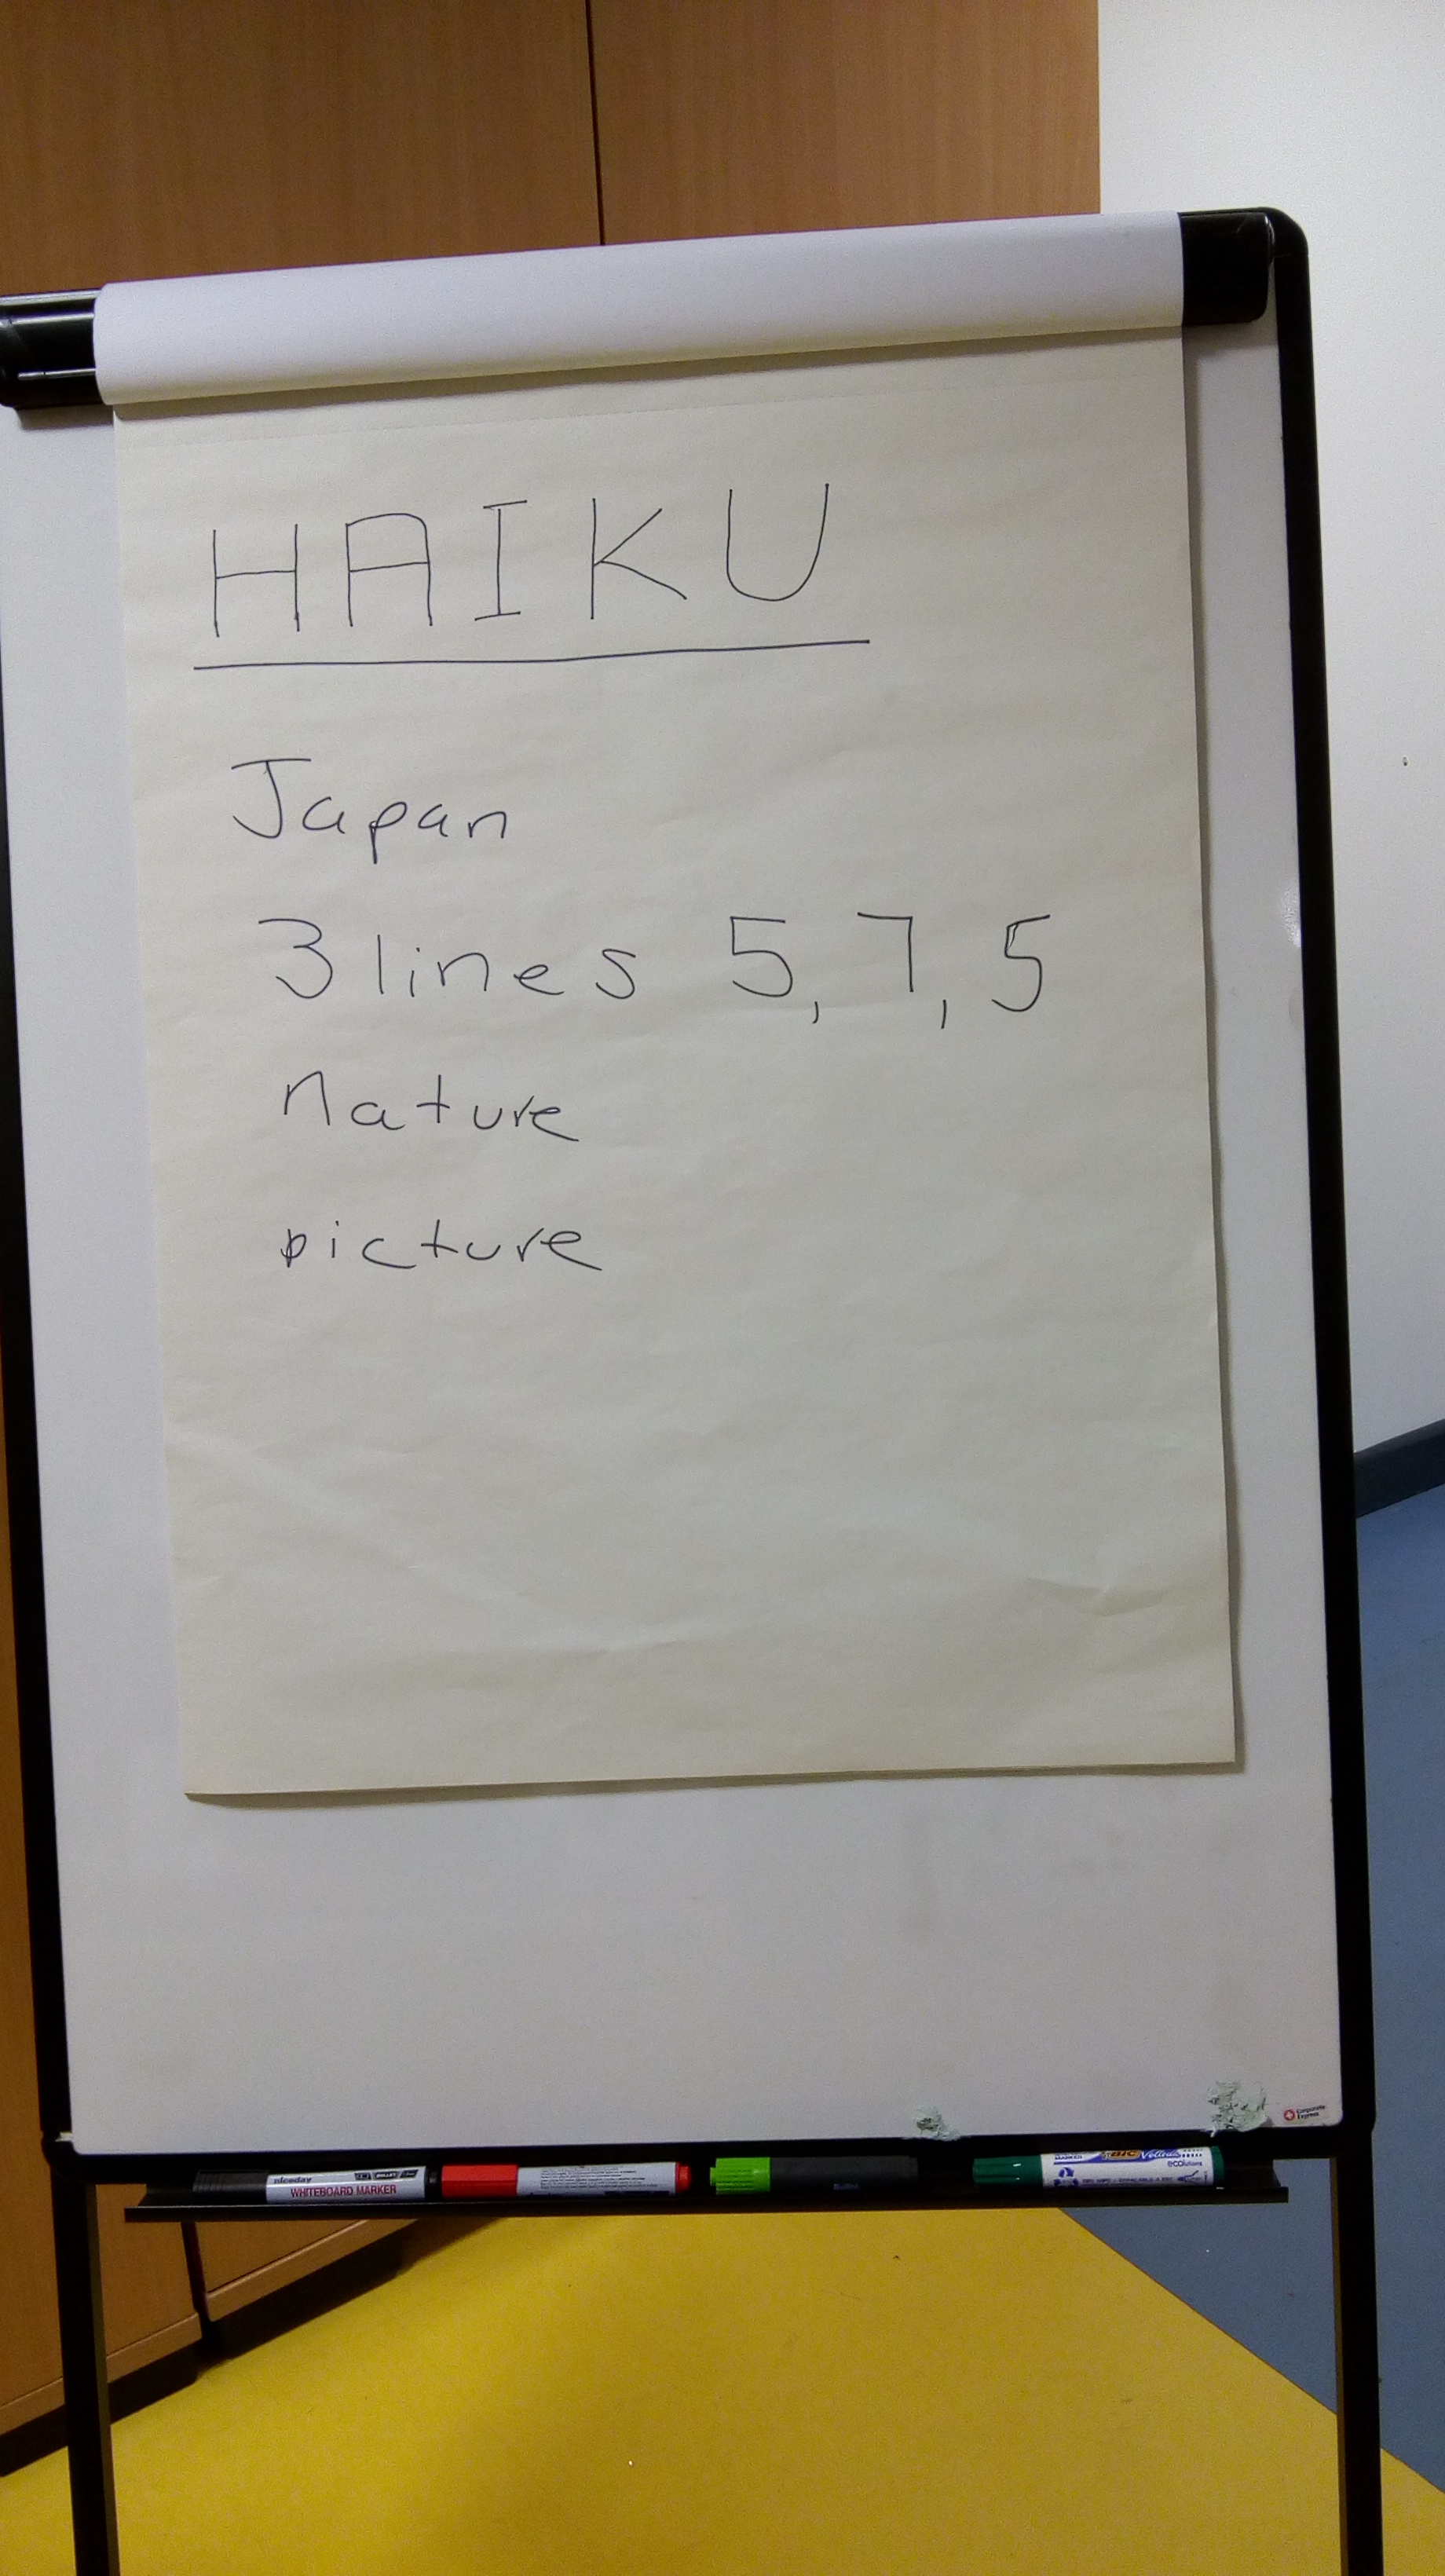 HAIKU
Japan
3 lines 5, 7, 5
nature
picture
Corporate
Express
niceday
WHITEBOARD MARKER
MARKER BIC Velleda
ecolutions